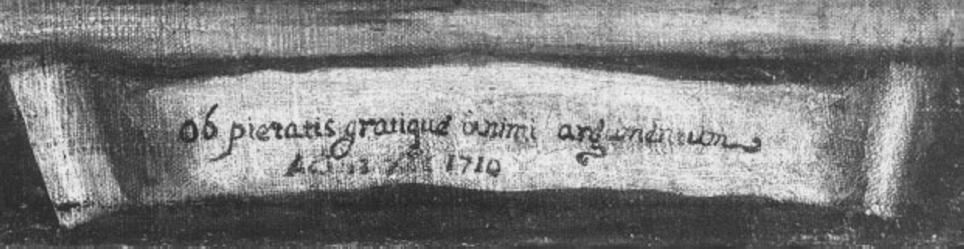 ob pietatis gratique animi argumentum
1710